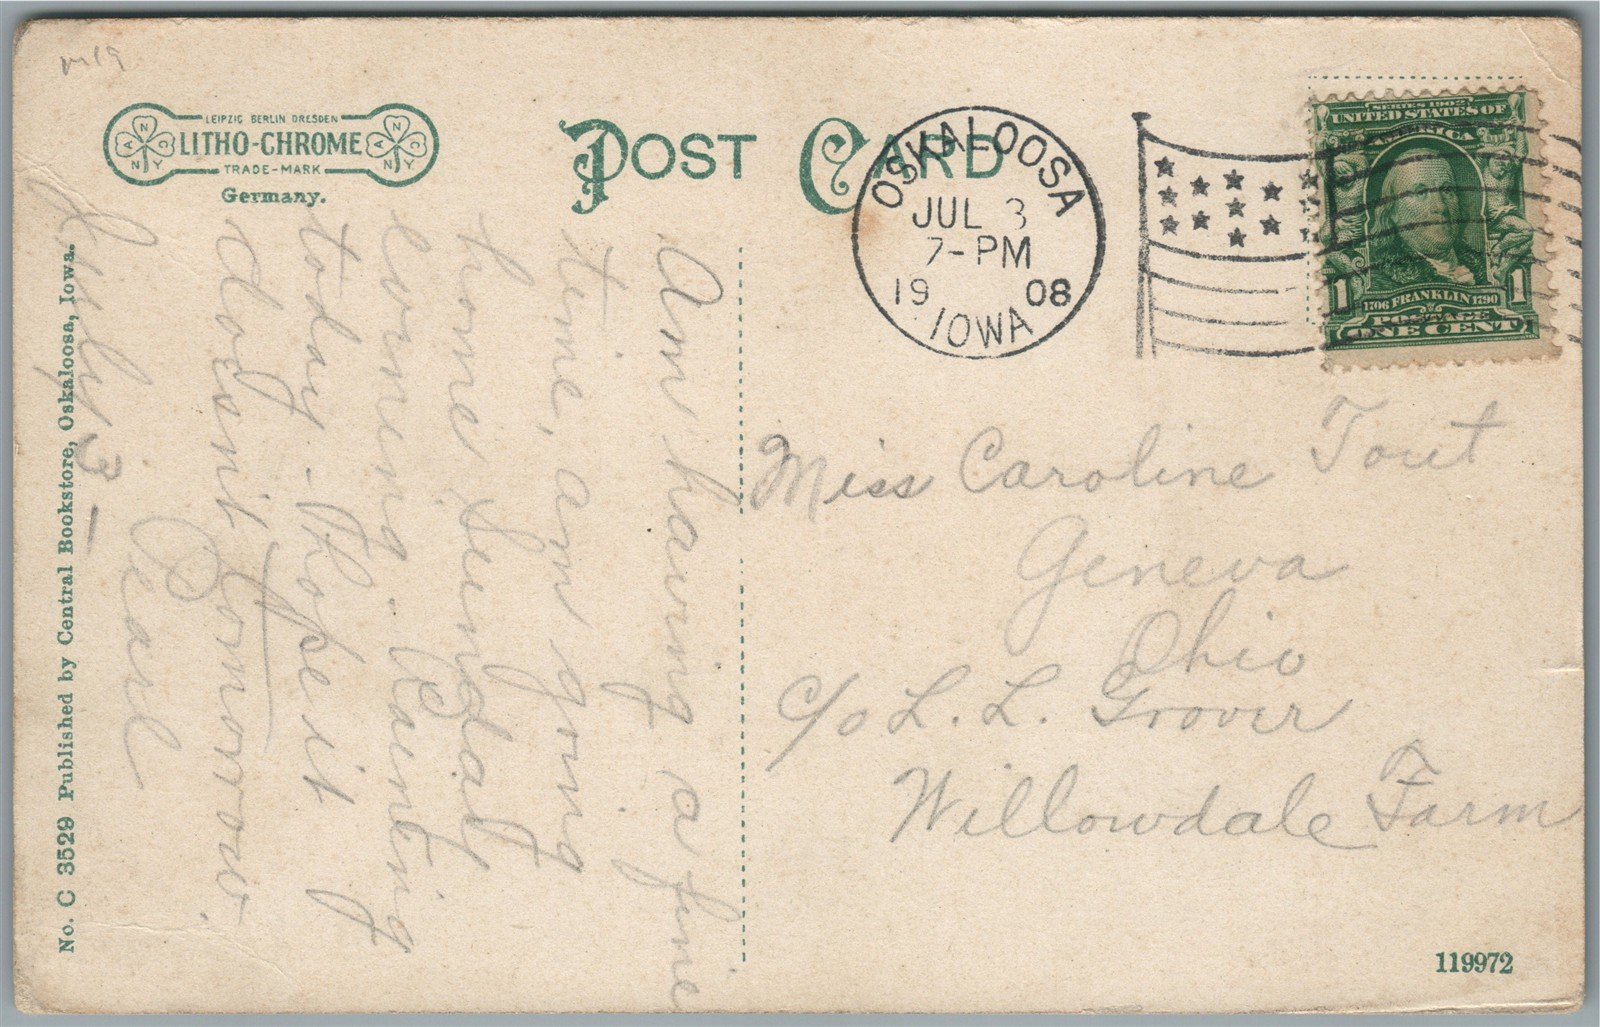 m19
LEIPZIG BERLIN DRESDEN
LITHO-CHROME
TRADE-MARK
Germany.
N
A C
N Y
N
A C
N Y
POST CARD
OSKALOOSA
JUL 3
7-PM
19 08
IOWA
SERIES 1902
UNITED STATES OF
AMERICA
1706 FRANKLIN 1790
1 1
POSTAGE
ONE CENT
Miss Caroline Tout
Geneva
Ohio
c/o L. L. Grover
Willowdale Farm
Am having a fine
time, am going
home Sunday
evening. Raining
today. Hope it
doesnt tomorrow.
Pearl
July 3 -
No. C 3529 Published by Central Bookstore, Oskaloosa, Iowa.
119972